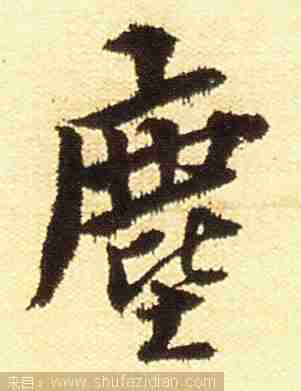 塵
来自：www.shufazidian.com